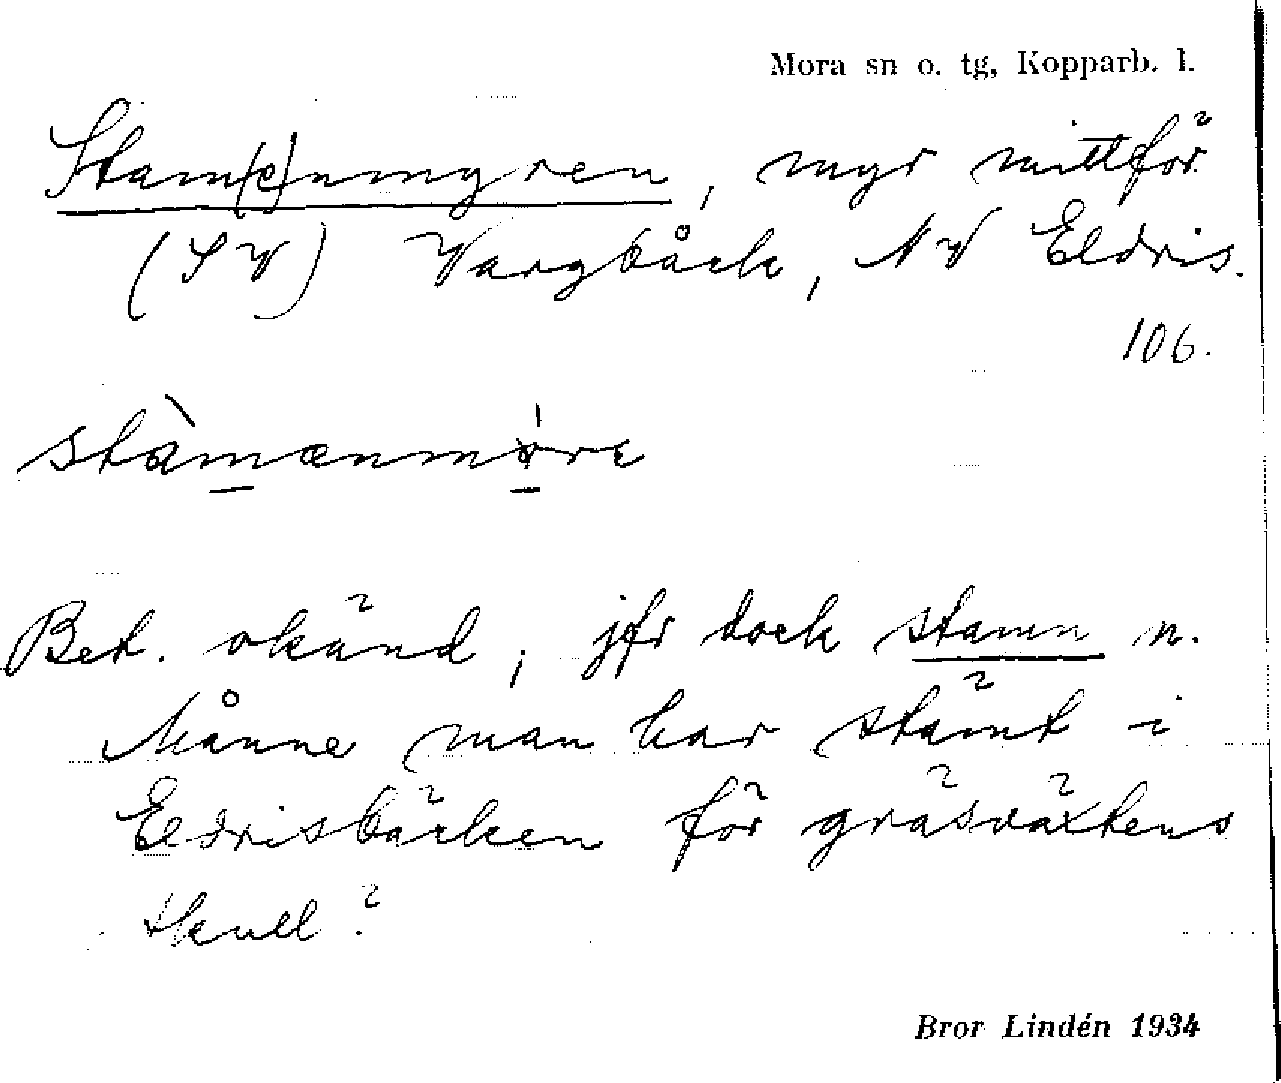 Mora sn o. tg, Kopparb. l.
Stam(e)nmyren, myr mittför
(SV) Vargbäck, NV Eldris.
106.
stàmænmøre
Bet. okänd; jfr dock stamn n.
Månne man har stämt i
Eldrisbäcken för gräsväxtens
skull?
Bror Lindén 1934